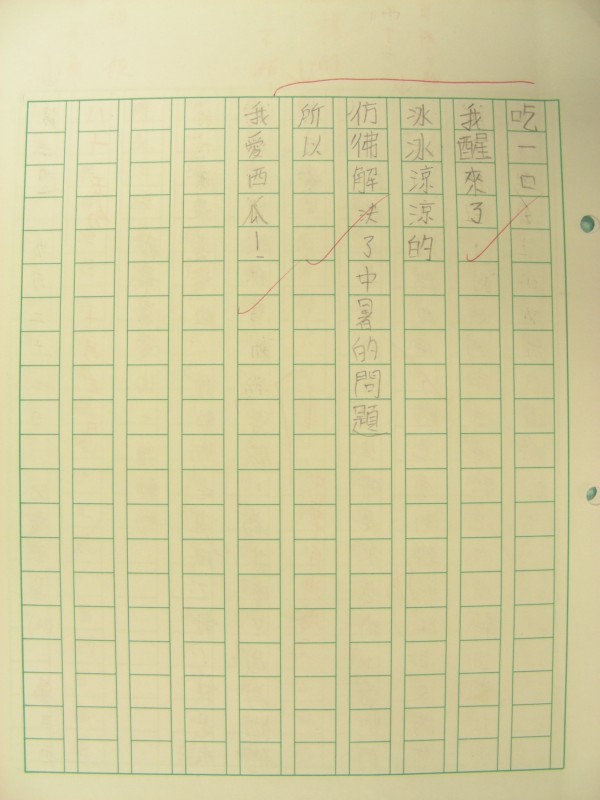 吃一口
我醒來了
冰冰涼涼的
彷彿解決了中暑的問題
所以
我愛西瓜！